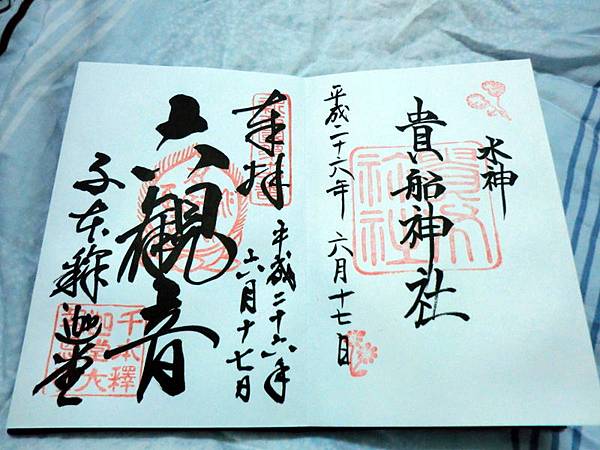 水神
貴船神社
平成二十六年 六月十七日
奉拝
平成二十六年
六月十七日
六観音
千本釋迦堂
千本釋
迦堂大